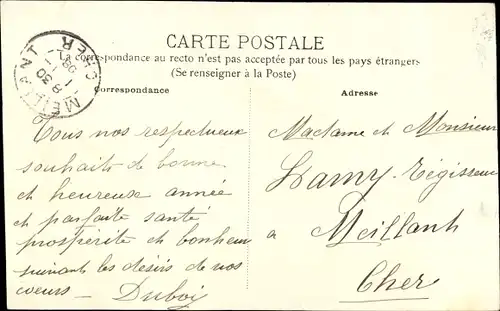 CARTE POSTALE
La correspondance au recto n'est pas acceptée par tous les pays étrangers
(Se renseigner à la Poste)
Correspondance
Adresse
MEILLANT
CHER
8 30
Tous nos respectueux
souhaits de bonne
et heureuse année
et parfaite santé
prospérité et bonheur
suivant les désirs de nos
coeurs - Duboi
Madame et Monsieur
Lamy Régisseur
a Meillant
Cher